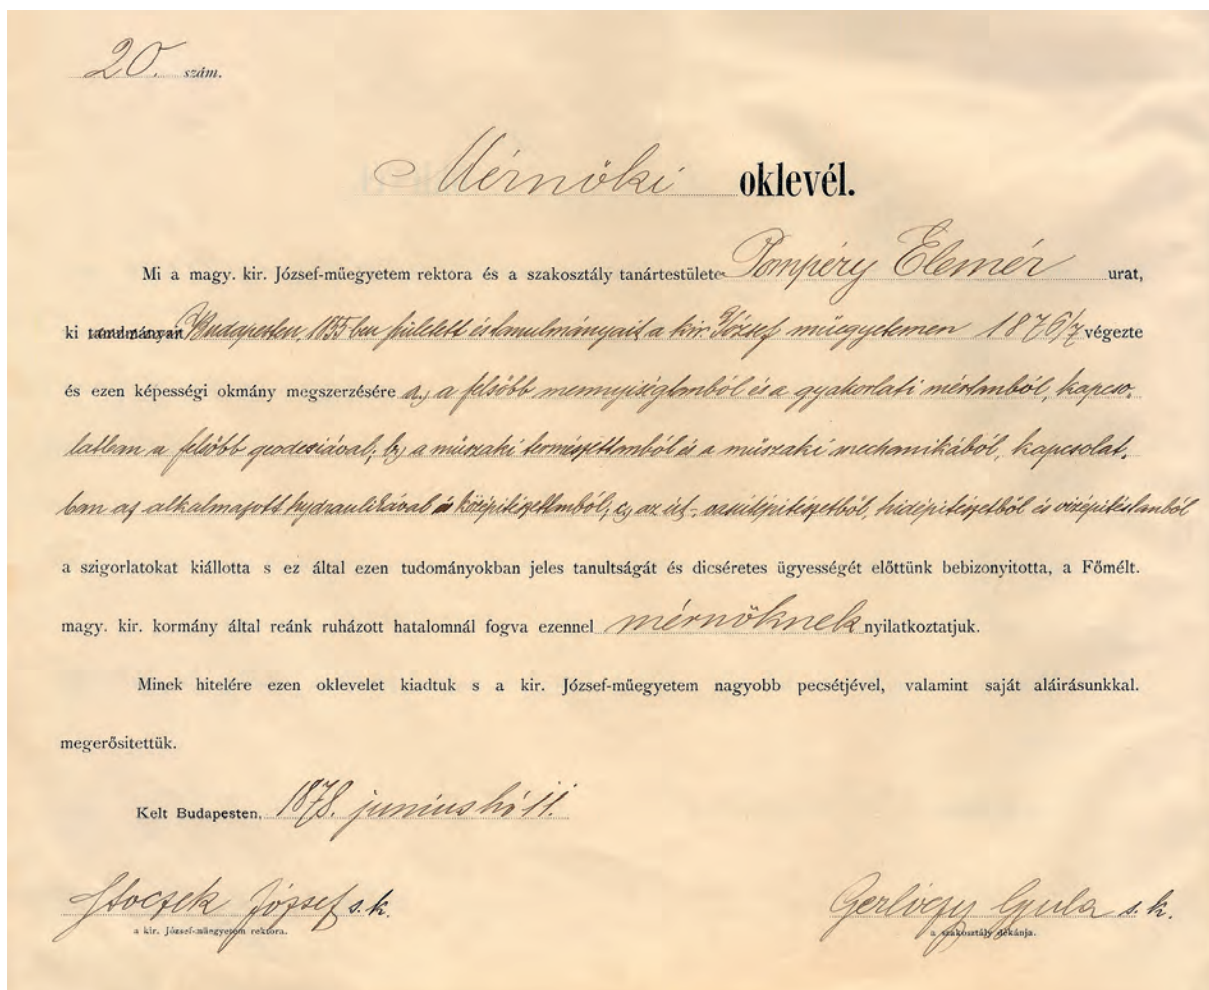 20. szám.
Mérnöki oklevél.
Mi a magy. kir. József-műegyetem rektora és a szakosztály tanártestülete Pompéry Elemér urat,
ki tanulmányait Budapesten, 1855-ben született és tanulmányait a kir. József műegyetemen 1876/7 végezte
és ezen képességi okmány megszerzésére a, a felsőbb mennyiségtanból és a gyakorlati mértanból, kapcso-
latban a felsőbb geodesiával; b, a műszaki természettanból és a műszaki mechanikából, kapcsolat-
ban az alkalmazott hydraulikával és középitészettanból; c, az út-, vasútépitészetből, hidépitészetből és vizépitéstanból
a szigorlatokat kiállotta s ez által ezen tudományokban jeles tanultságát és dicséretes ügyességét előttünk bebizonyitotta, a Főmélt.
magy. kir. kormány által reánk ruházott hatalomnál fogva ezennel mérnöknek nyilatkoztatjuk.
Minek hitelére ezen oklevelet kiadtuk s a kir. József-műegyetem nagyobb pecsétjével, valamint saját aláirásunkkal.
megerősitettük.
Kelt Budapesten, 1878. junius hó 11.
Stoczek József s. k. Gerlóczy Gyula s. k.
a kir. József-műegyetem rektora. a szakosztály dékánja.